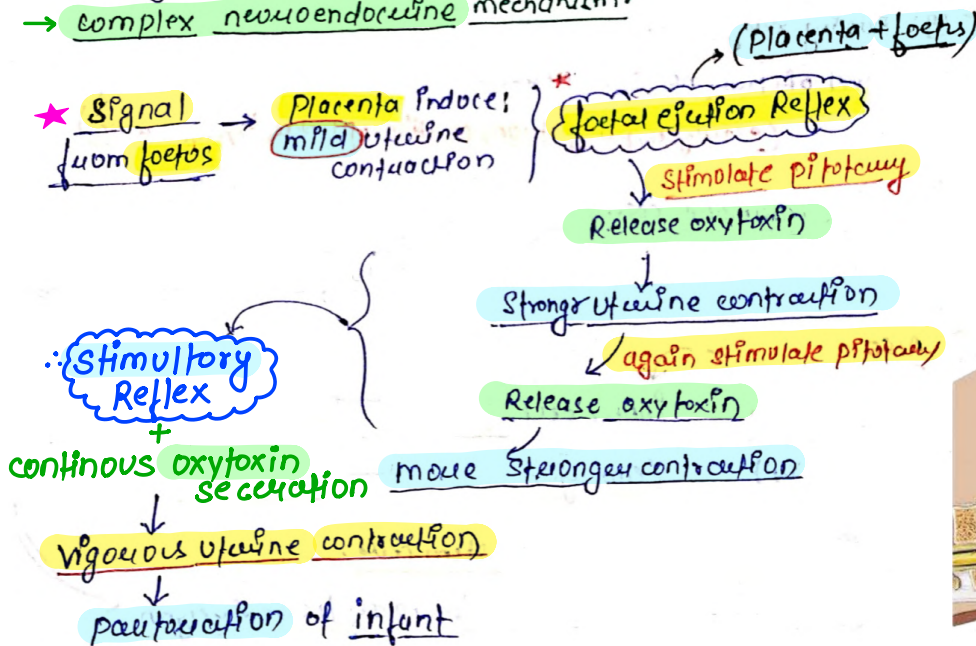 → complex neuroendocrine mechanism.
(Placenta + foetus)
★ Signal → Placenta induce:
from foetus
mild uterine
contraction
* foetal ejution Reflex
Stimolate pitotary
Release oxytoxin
Strongr uterine contraction
again stimolate pitotary
Release oxytoxin
more stronger contraction
∴ Stimultory
Reflex
+
continous oxytoxin
seceration
↓
vigorous uterine contraction
↓
parturation of infant